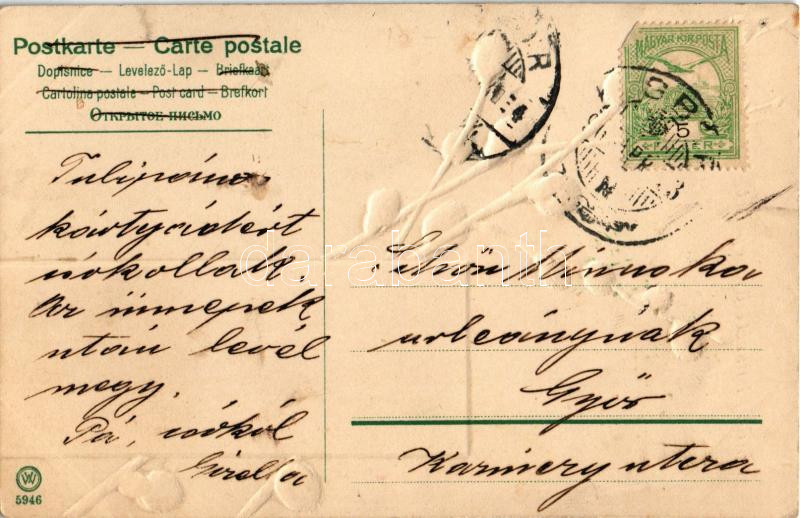 Postkarte — Carte poștale
Dopisnice — Levelező-Lap — Briefkaart
Cartolina postale — Post card — Brefkort
Открытое письмо
MAGYAR KIR. POSTA
5
FILLÉR
Tulipános
kártyádért
csókollak.
Az ünnepek
után levél
megy.
Pá, csókol
Gizella
Minuska
urleánynak
Győr
Kazinczy utcza
W
5946
darabanth